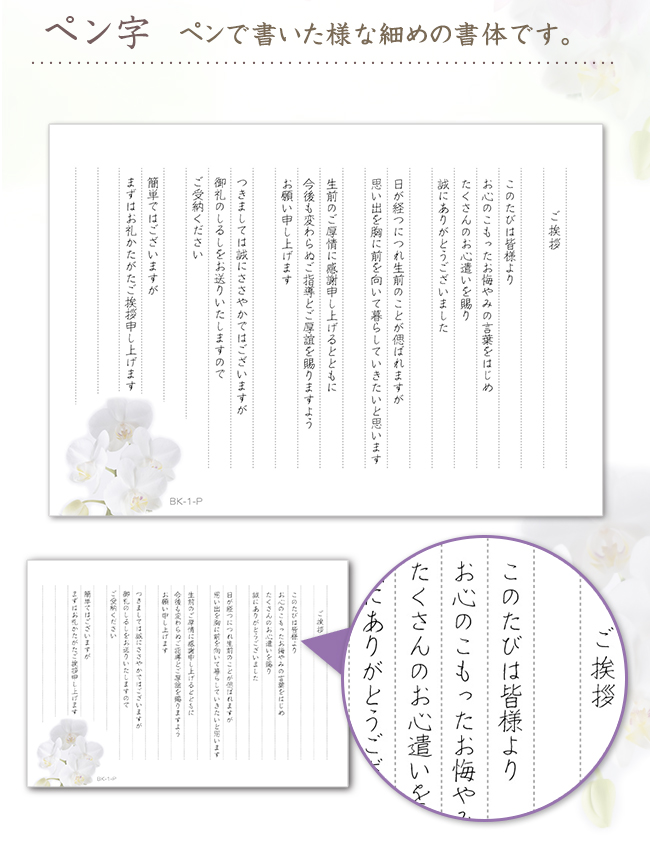 ペン字　ペンで書いた様な細めの書体です。
ご挨拶
このたびは皆様より
お心のこもったお悔やみの言葉をはじめ
たくさんのお心遣いを賜り
誠にありがとうございました
日が経つにつれ生前のことが偲ばれますが
思い出を胸に前を向いて暮らしていきたいと思います
生前のご厚情に感謝申し上げるとともに
今後も変わらぬご指導とご厚誼を賜りますよう
お願い申し上げます
つきましては誠にささやかではございますが
御礼のしるしをお送りいたしますので
ご受納ください
簡単ではございますが
まずはお礼かたがたご挨拶申し上げます
BK-1-P
ご挨拶
このたびは皆様より
お心のこもったお悔やみの言葉をはじめ
たくさんのお心遣いを賜り
誠にありがとうございました
日が経つにつれ生前のことが偲ばれますが
思い出を胸に前を向いて暮らしていきたいと思います
生前のご厚情に感謝申し上げるとともに
今後も変わらぬご指導とご厚誼を賜りますよう
お願い申し上げます
つきましては誠にささやかではございますが
御礼のしるしをお送りいたしますので
ご受納ください
簡単ではございますが
まずはお礼かたがたご挨拶申し上げます
BK-1-P
ご挨拶
このたびは皆様より
お心のこもったお悔やみ
たくさんのお心遣いを
にありがとうござ